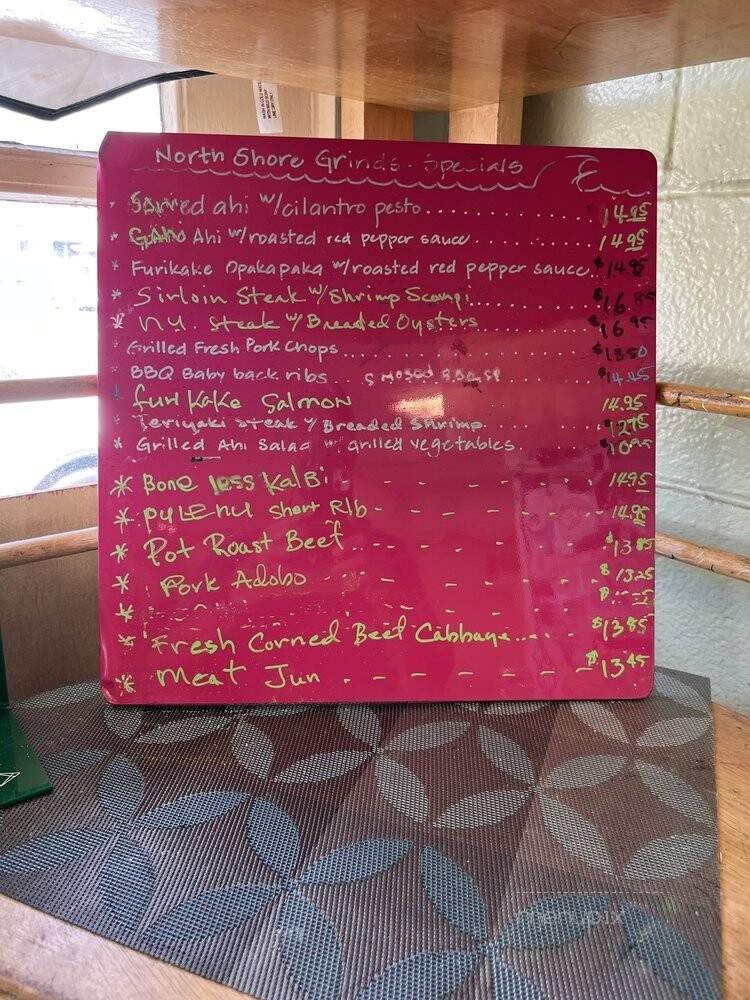 North Shore Grinds. Specials
* ahi w/cilantro pesto 14.95
* Ahi w/roasted red pepper sauce 14.95
* Furikake Opakapaka w/roasted red pepper sauce. $14.95
* Sirloin Steak w/Shrimp Scampi $16.85
* N.Y. Steak w/Breaded Oysters $16.95
* Grilled Fresh Pork Chops $13.50
* BBQ Baby back ribs 14.45
* furikake Salmon 14.95
* Teriyaki steak w/ Breaded Shrimp 12.75
* Grilled Ahi Salad w/ grilled vegetables 10.95
* Boneless KalBi 14.95
* short RIb 14.95
* Pot Roast Beef $13.85
* Pork Adobo $13.25
*
* Fresh Corned Beef Cabbage $13.85
* Meat Jun $13.45
menupix